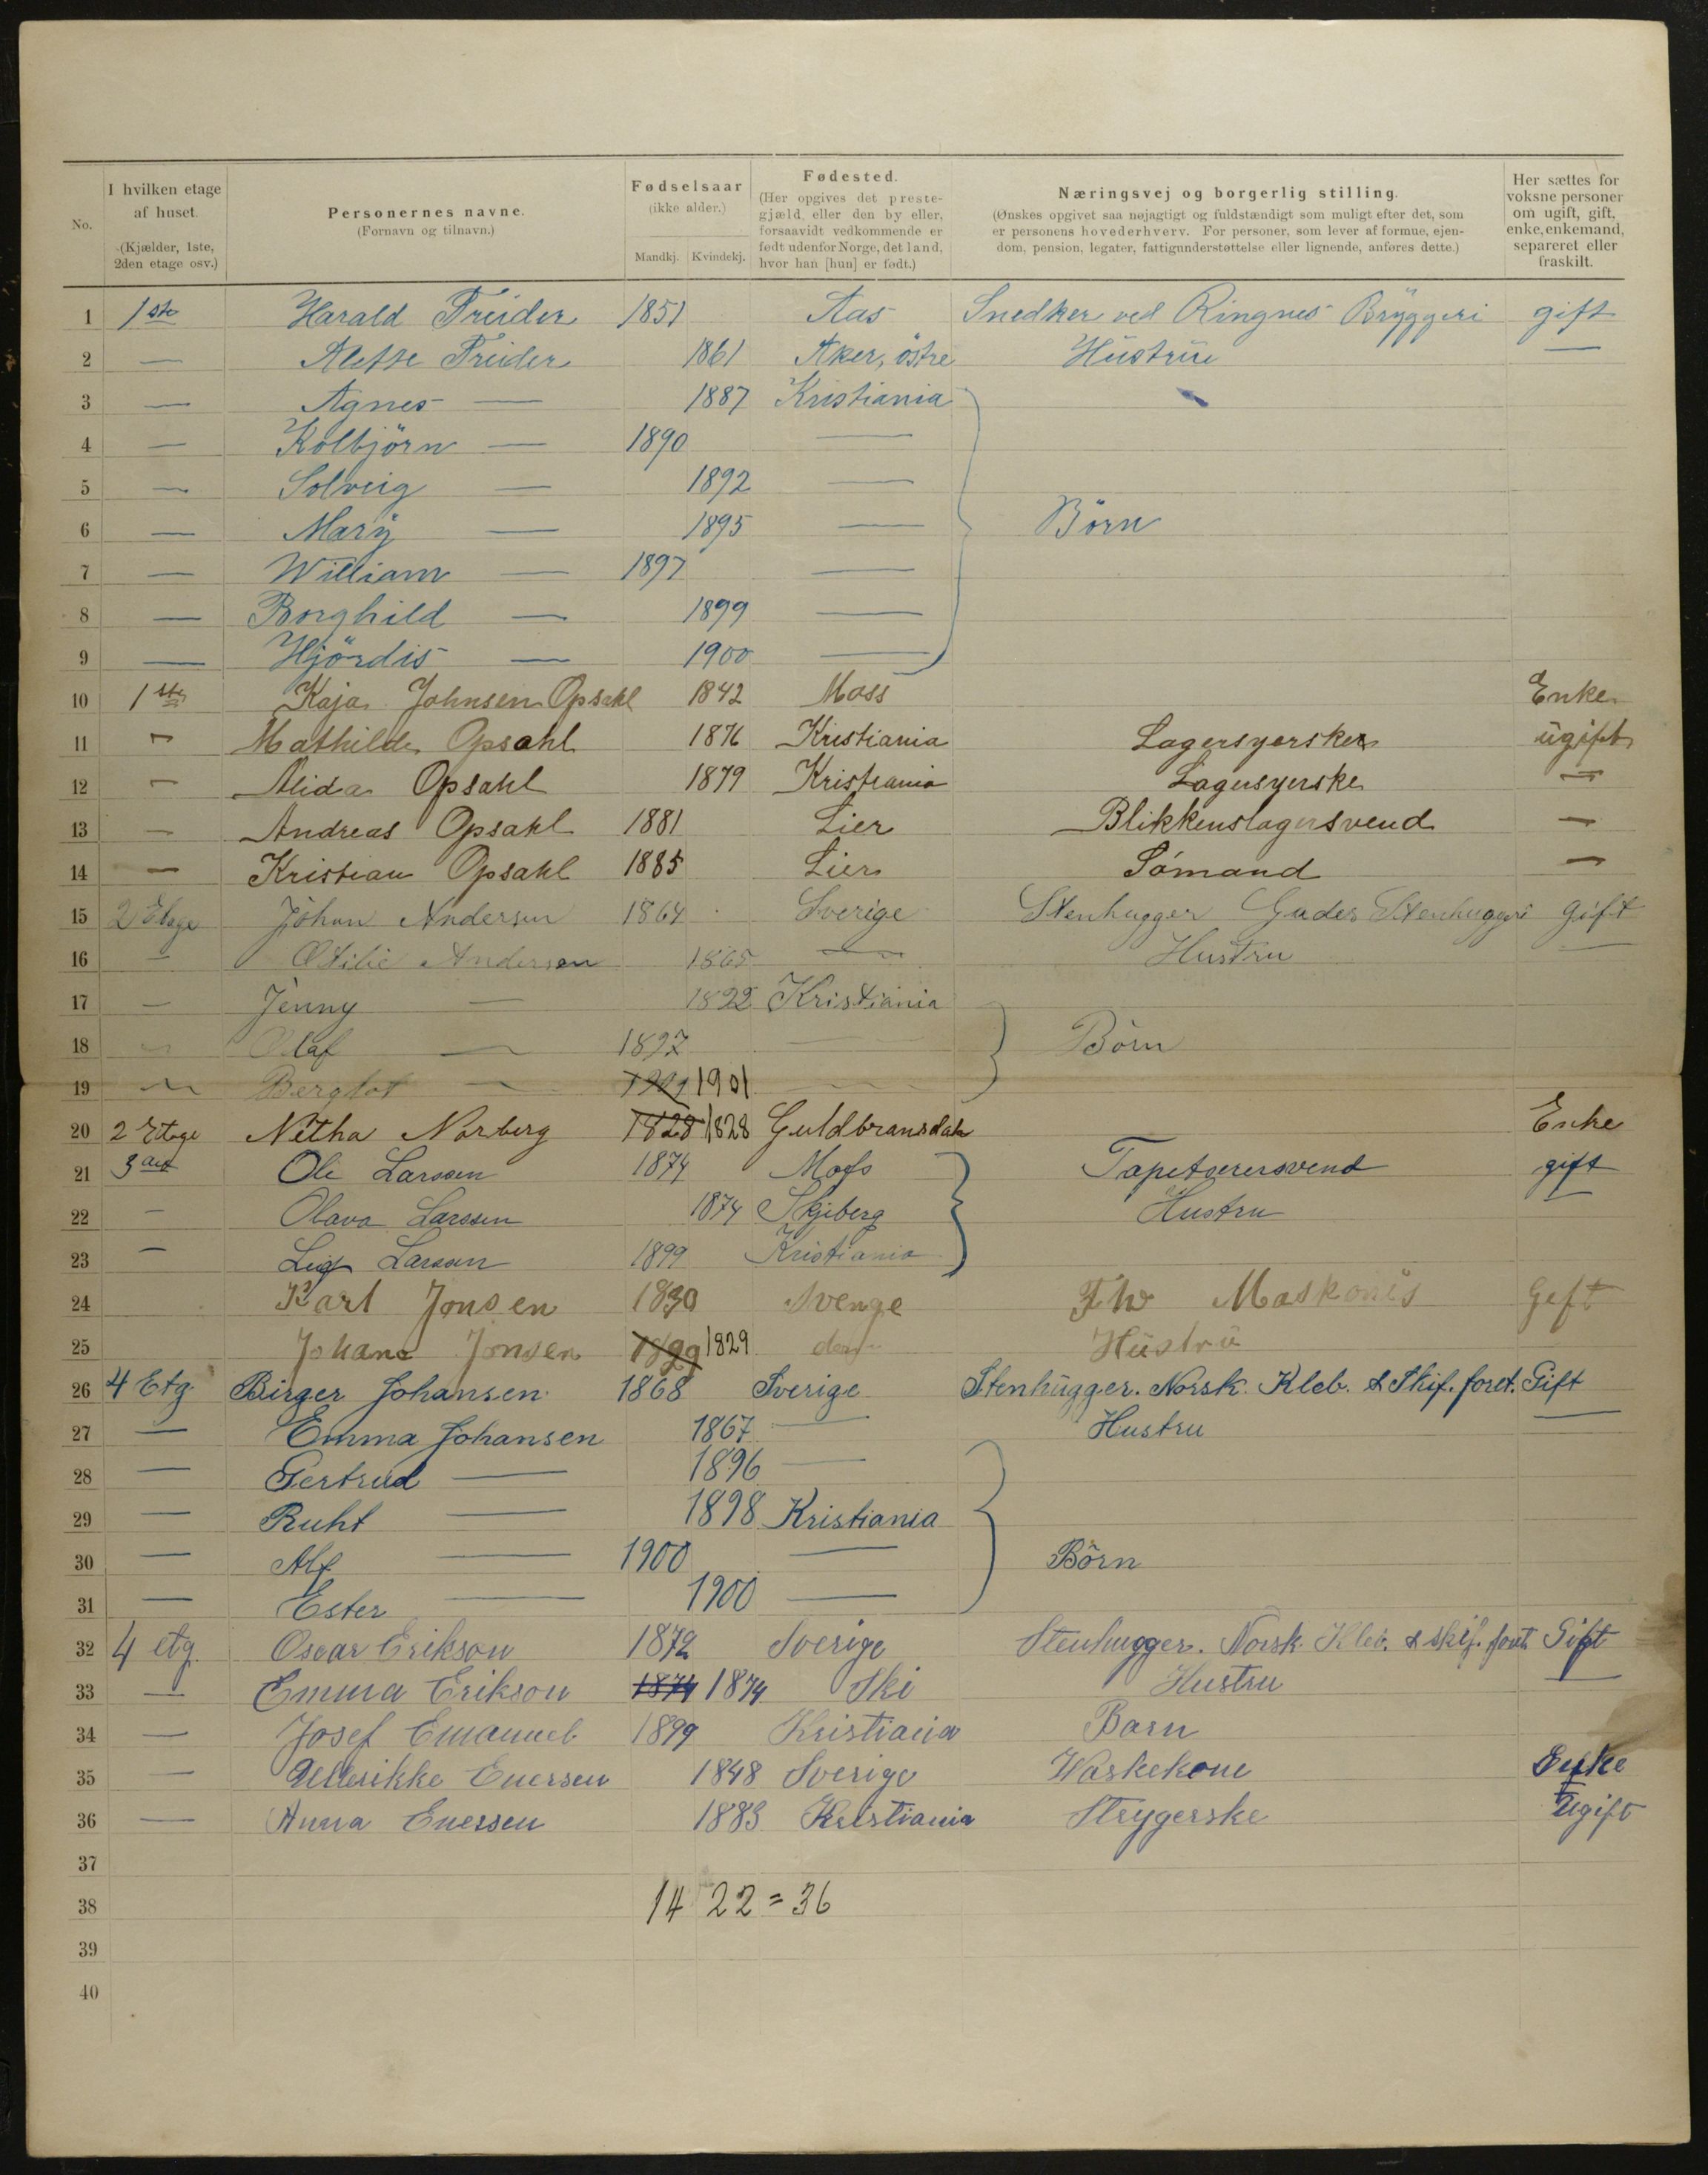 No. | I hvilken etage af huset. (Kjælder, 1ste, 2den etage osv.) | Personernes navne. (Fornavn og tilnavn.) | Fødselsaar (ikke alder.) Mandkj. Kvindekj. | Fødested. (Her opgives det prestegjæld eller den by eller, forsaavidt vedkommende er født udenfor Norge, det land, hvor han [hun] er født.) | Næringsvej og borgerlig stilling. (Ønskes opgivet saa nøjagtigt og fuldstændigt som muligt efter det, som er personens hovederhverv. For personer, som lever af formue, ejendom, pension, legater, fattigunderstøttelse eller lignende, anføres dette.) | Her sættes for voksne personer om ugift, gift, enke, enkemand, separeret eller fraskilt.
1 1ste Harald Treider 1851 Aas Snedker ved Ringnes Bryggeri gift
2 — Alette Treider 1861 Aker, östre Hustru —
3 — Agnes — 1887 Kristiania
4 — Kolbjörn — 1890 —
5 — Solveig — 1892 —
6 — Mary — 1895 — Börn
7 — William — 1897 —
8 — Borghild — 1899 —
9 — Hjördis — 1900 —
10 1ste Kaja Johnsen Opsahl 1842 Moss Enke
11 — Mathilde Opsahl 1876 Kristiania Lagersyerske ugift
12 — Alida Opsahl 1879 Kristiania Lagersyerske —
13 — Andreas Opsahl 1881 Lier Blikkenslagersvend —
14 — Kristian Opsahl 1885 Lier Sömand —
15 2 Etage Johan Andersen 1864 Sverige Stenhugger Gudes Stenhuggeri gift
16 — Otilie Andersen 1865 — Hustru —
17 — Jenny — 1892 Kristiania
18 — Olaf — 1897 — Börn
19 — Berglot — 1901 1901 —
20 2 Etage Netha Norberg 1828 1828 Guldbransdal Enke
21 3die Ole Larssen 1874 Moss Tapetserersvend gift
22 — Olava Larssen 1874 Skjeberg Hustru —
23 — Leif Larssen 1899 Kristiania
24 Karl Jonsen 1830 Sverige Maskonis Gift
25 Johana Jonsen 1829 1829 Hustru
26 4 Etg. Birger Johansen 1868 Sverige Stenhugger. Norsk. Kleb. & Skif. foret. Gift
27 — Emma Johansen 1867 — Hustru —
28 — Gertrud — 1896 —
29 — Ruht — 1898 Kristiania
30 — Alf — 1900 — Börn
31 — Ester — 1900 —
32 4 etg. Oscar Erikson 1872 Sverige Stenhugger. Norsk. Kleb. & skif. foret. Gift
33 — Emma Erikson 1874 1874 Ski Hustru —
34 — Josef Emanuel 1899 Kristiania Barn
35 — Ullerikke Enersen 1848 Sverige Waskekone Enke
36 — Anna Enersen 1883 Kristiania Strygerske Ugift
37
38 14 22 = 36
39
40